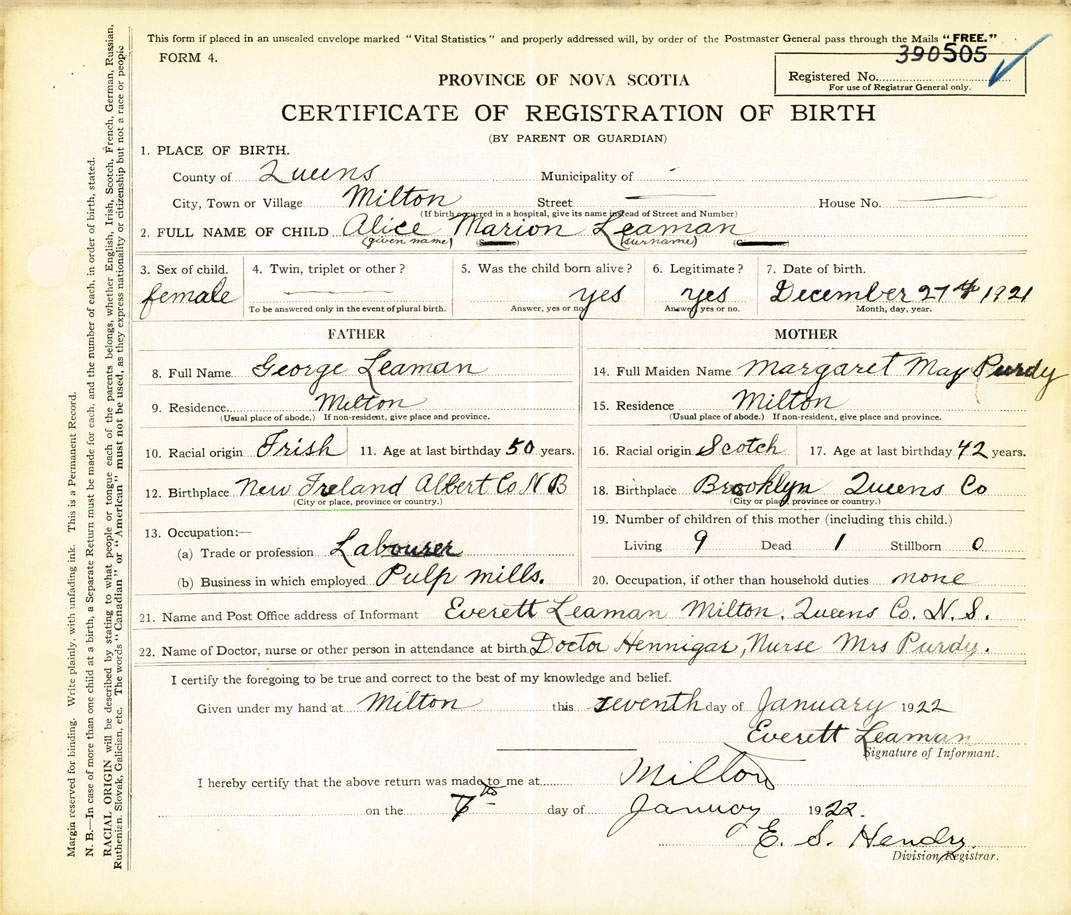 This form if placed in an unsealed envelope marked "Vital Statistics" and properly addressed will, by order of the Postmaster General pass through the Mails "FREE."
FORM 4.
390505
Registered No.
For use of Registrar General only.
PROVINCE OF NOVA SCOTIA
CERTIFICATE OF REGISTRATION OF BIRTH
(BY PARENT OR GUARDIAN)
1. PLACE OF BIRTH.
County of Queens Municipality of -
City, Town or Village Milton Street — House No. —
(If birth occurred in a hospital, give its name instead of Street and Number)
2. FULL NAME OF CHILD Alice Marion Leaman
(given name) (surname)
3. Sex of child. 4. Twin, triplet or other? 5. Was the child born alive? 6. Legitimate? 7. Date of birth.
female — yes yes December 27th 1921
To be answered only in the event of plural birth. Answer, yes or no. Answer, yes or no. Month, day, year.
FATHER
8. Full Name George Leaman
9. Residence Milton
(Usual place of abode.) If non-resident, give place and province.
10. Racial origin Irish 11. Age at last birthday 50 years.
12. Birthplace New Ireland Albert Co N B
(City or place, province or country.)
13. Occupation:—
(a) Trade or profession Labourer
(b) Business in which employed Pulp mills.
MOTHER
14. Full Maiden Name Margaret May Purdy
15. Residence Milton
(Usual place of abode.) If non-resident, give place and province.
16. Racial origin Scotch 17. Age at last birthday 42 years.
18. Birthplace Brooklyn Queens Co
(City or place, province or country.)
19. Number of children of this mother (including this child.)
Living 9 Dead 1 Stillborn 0
20. Occupation, if other than household duties none
21. Name and Post Office address of Informant Everett Leaman Milton. Queens Co. N. S.
22. Name of Doctor, nurse or other person in attendance at birth. Doctor Hennigar, Nurse Mrs Purdy.
I certify the foregoing to be true and correct to the best of my knowledge and belief.
Given under my hand at Milton this seventh day of January 1922
Everett Leaman
Signature of Informant.
I hereby certify that the above return was made to me at Milton
on the 7th day of January 1922.
E. S. Hendry
Division Registrar.
Margin reserved for binding. Write plainly, with unfading ink. This is a Permanent Record.
N. B.—In case of more than one child at a birth, a Separate Return must be made for each, and the number of each, in order of birth, stated.
RACIAL ORIGIN will be described by stating to what people or tongue each of the parents belongs, whether English, Irish, Scotch, French, German, Russian,
Ruthenian, Slovak, Galician, etc. The words "Canadian" or "American" must not be used, as they express nationality or citizenship but not a race or people